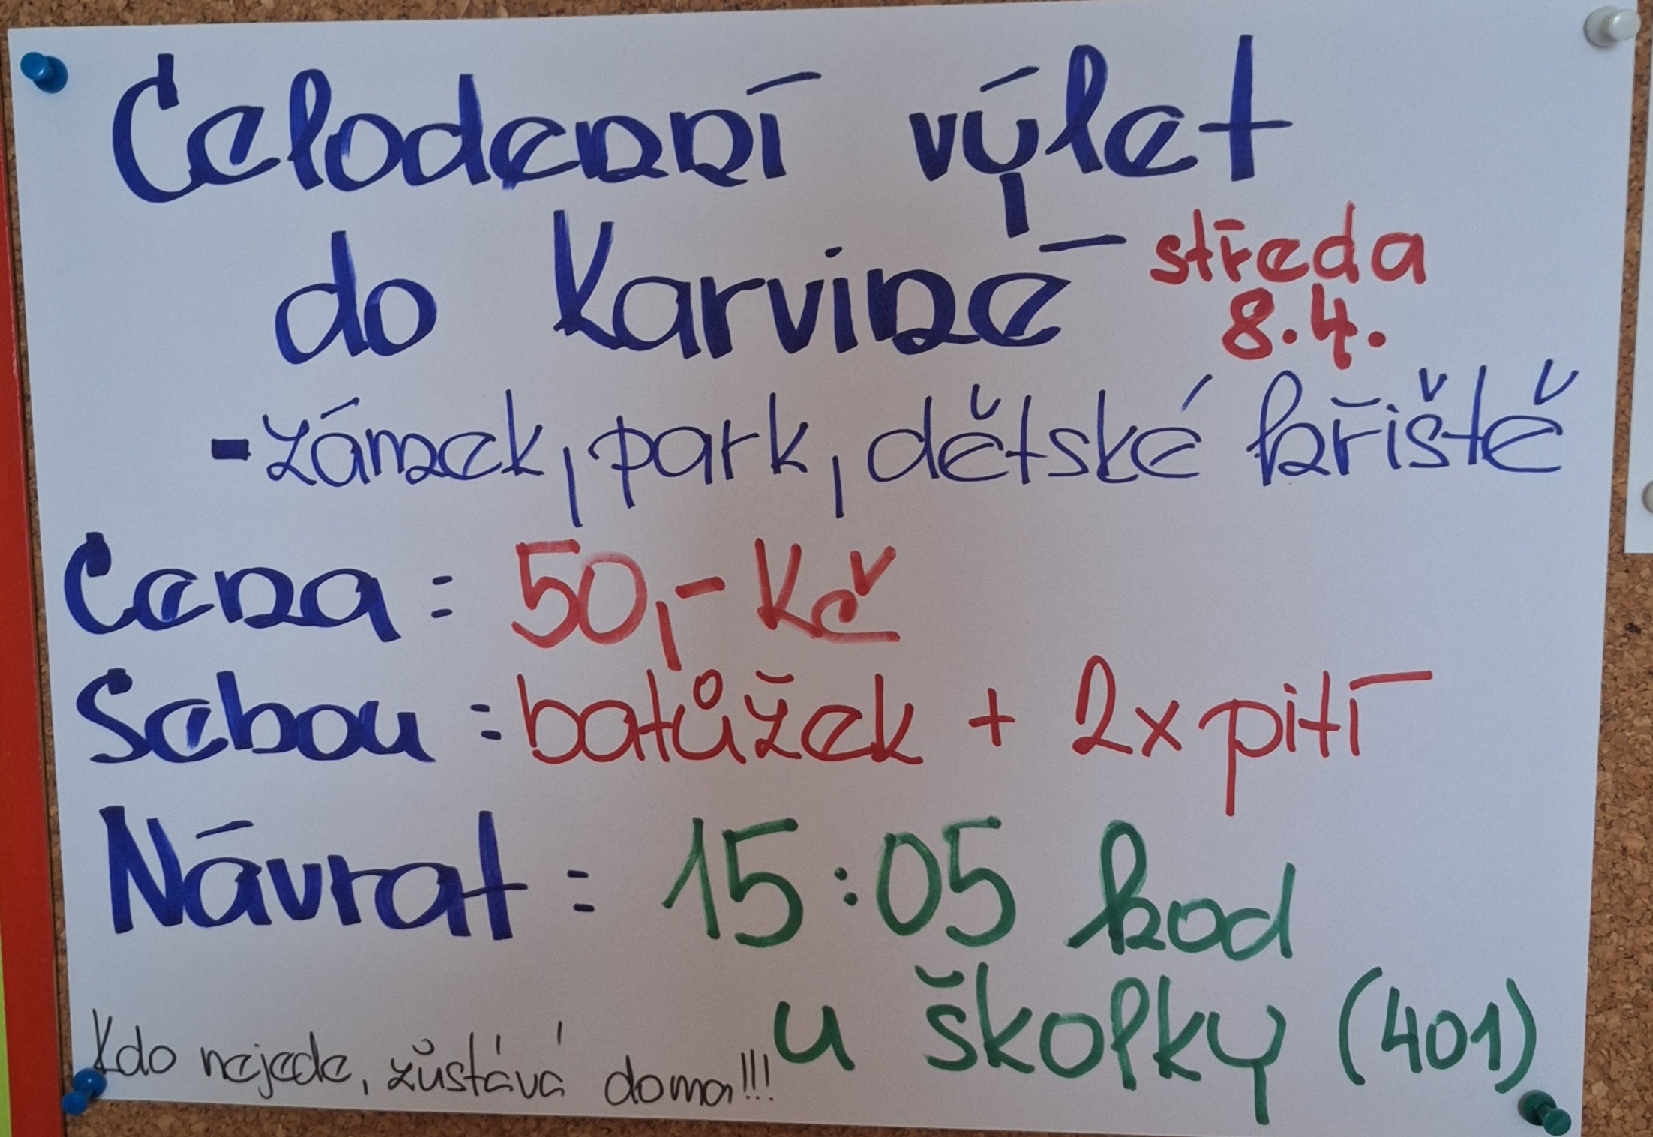 Celodenní výlet
do Karviné středa
8.4.
-zámek, park, dětské hřiště
Cena = 50,- Kč
Sebou = batůžek + 2x pití
Návrat = 15:05 hod
u školky (401)
Kdo nejede, zůstává doma!!!